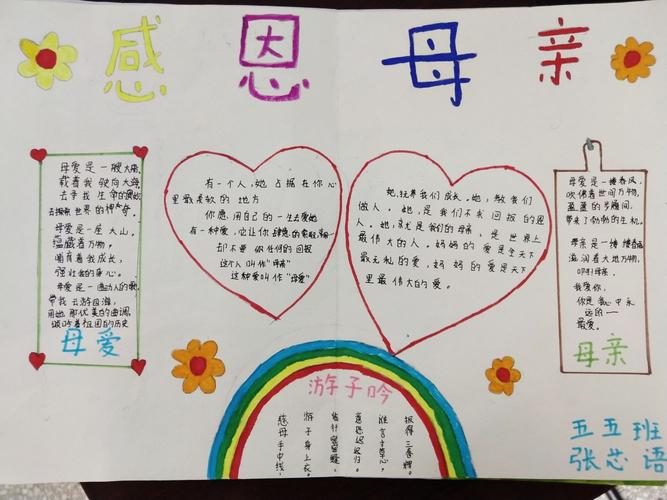 感恩母亲
母爱是一艘大船,
载着我驶向大海
去寻找生命的
去探索世界的神奇。
母爱是一座大山,
蕴藏着万物,
哺育着我成长,
强壮的身心。
母爱是一首动人的歌,
带我云游四海,
用她那优美的曲调,
倾吟着祖国的历史
母爱
有一个人,她占据在你心
里最柔软的地方
你愿用自己的一生去爱她
有一种爱,它让你肆意的索取,享用
却不要你任何的回报
这个人叫作"母亲"
这种爱叫作"母爱"
她,抚养我们成长。她,教我们
做人。她,是我们不求回报的恩
人。她,就是我们的母亲,是世界上
最伟大的人。妈妈的爱是全天下
最无私的爱,妈妈的爱是天下
里最伟大的爱。
母爱是一捧春风,
吹拂着世间万物,
盈盈的步履间,
带来了勃勃的生机。
母亲是一捧
滋润着大地万物,
母亲,
我爱你,
你是我心中永
远的一
最爱。
母亲
游子吟
慈母手中线,
游子身上衣。
临行密密缝,
意恐迟迟归。
谁言寸草心,
报得三春晖。
五五班
张芯语